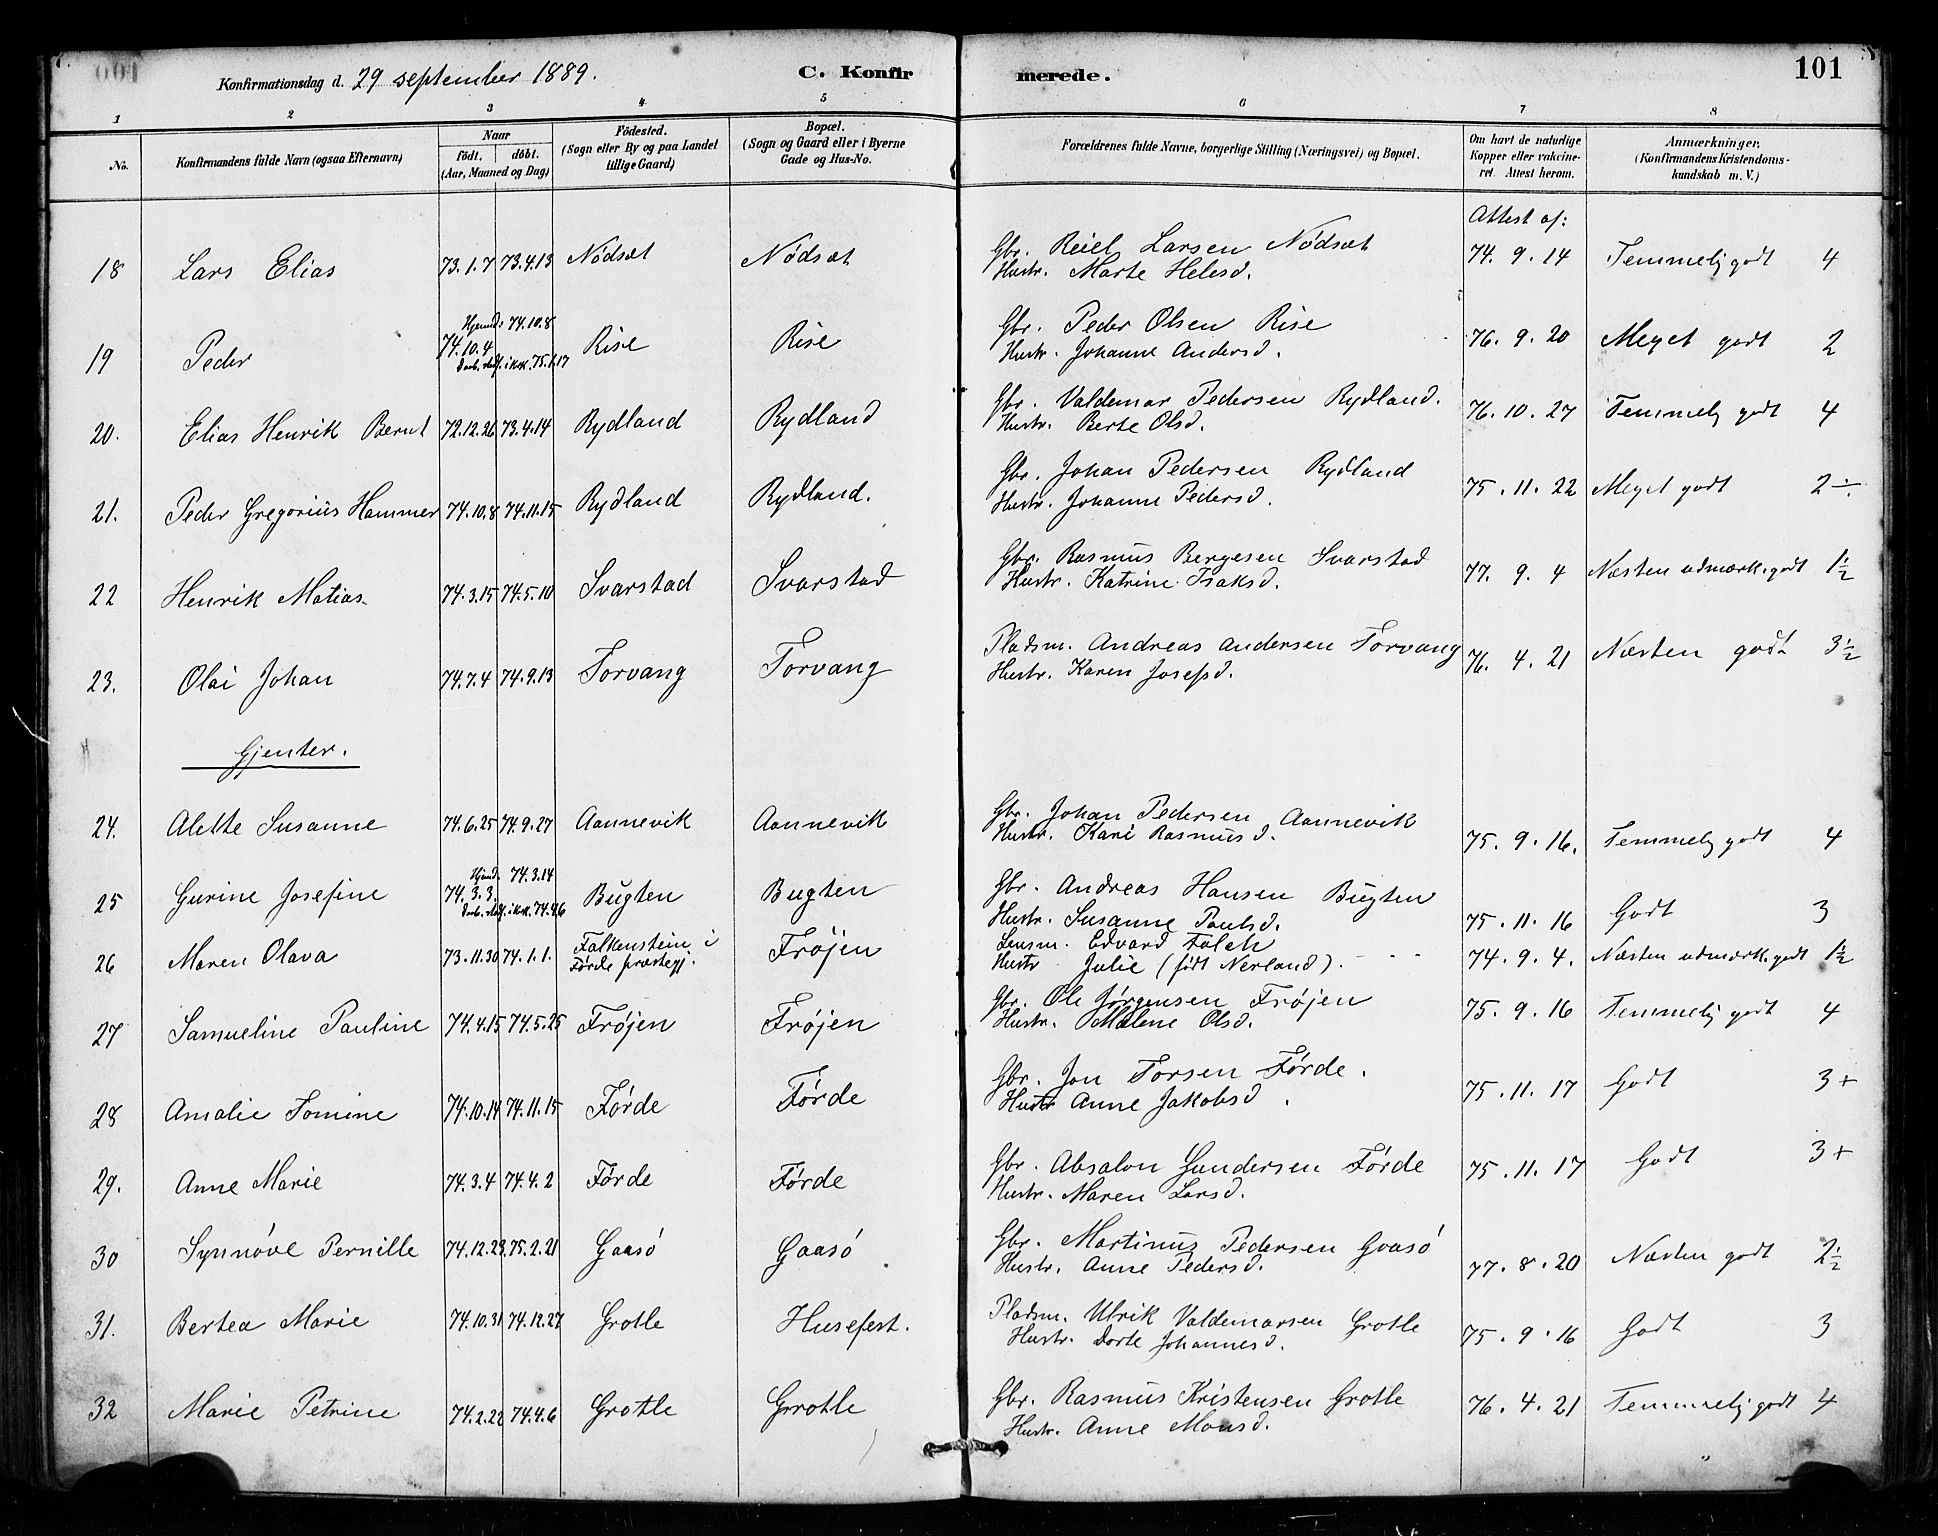 Konfirmationsdag d. 29 september 1889. C. Konfirmerede. 101
1 2 3 4 5 6 7 8
No. Konfirmandens fulde Navn (ogsaa Efternavn) Naar født. døbt. (Aar, Maaned og Dag) Födested. (Sogn eller By og paa Landet tillige Gaard) Bopæl. (Sogn og Gaard eller i Byerne Gade og Hus-No. Forældrenes fulde Navne, borgerlige Stilling (Næringsvei) og Bopæl. Om havt de naturlige Kopper eller vakcineret. Attest herom. Anmærkninger. (Konfirmandens Kristendomskundskab m. V.)
Attest af:
18 Lars Elias 73.1.7 73.4.13 Nødsæt Nødsæt Gbr. Reiel Larsen Nødsæt 74.9.14 Temmelig godt 4
Hustr. Marte Helesd.
19 Peder Hjemd: 74.10.8 74.10.4 Daab. stadf. i kirk. 75.1.17 Rise Rise Gbr. Peder Olsen Rise 76.9.20 Meget godt 2
Hustr. Johanne Andersd.
20. Elias Henrik Bernt 72.12.26 73.4.14 Rydland Rydland Gbr. Valdemar Pedersen Rydland. 76.10.27 Temmelig godt 4
Hustr. Berte Olsd.
21. Peder Gregorius Hammer 74.10.8 74.11.15 Rydland Rydland. Gbr. Johan Pedersen Rydland 75.11.22 Meget godt 2÷
Hustr. Johanne Pedersd.
22 Henrik Matias 74.3.15 74.5.10 Svarstad Svarstad Gbr. Rasmus Bergesen Svarstad 77.9.4 Næsten udmærk. godt 1½
Hustr. Katrine Isaksd.
23. Olai Johan 74.7.4 74.9.13 Torvang Torvang Pladsm. Andreas Andersen Torvang 76.4.21 Næsten godt 3½
Hustr. Karen Josefsd.
Gjenter.
24. Alette Susanne 74.6.25 74.9.27 Aannevik Aannevik Gbr. Johan Pedersen Aannevik 75.9.16. Temmelig godt 4
Hustr. Kari Rasmusd.
25 Gurine Josefine Hjemd. 74.3.14 74.3.3 Daab. stadf. i kirk. 74.4.6 Bugten Bugten Gbr. Andreas Hansen Bugten 75.11.16 Godt 3
Hustr. Susanne Paulsd.
26 Maren Olava 73.11.30 74.1.1. Falkenstein i Førde præstegj. Frøjen Lensm. Edvard Falch 74.9.4. Næsten udmærk. godt 1½
Hustr Julie (født Nerland).
27 Samueline Pauline 74.4.15 74.5.25 Frøjen Frøjen Gbr. Ole Jørgensen Frøjen 75.9.16 Temmelig godt 4
Hustr. Malene Olsd.
28 Amalie Tomine 74.10.14 74.11.15 Førde Førde Gbr. Jon Torsen Førde. 75.11.17 Godt 3+
Hustr Anne Jakobsd.
29. Anne Marie 74.3.4 74.4.2 Førde Førde Gbr. Absalon Gundersen Førde 75.11.17 Godt 3+
Hustr. Maren Larsd.
30 Synnøve Pernille 74.12.29. 75.2.21 Gaasø Gaasø Gbr. Martinus Pedersen Gaasø 77.8.20 Næsten godt 2½
Hustr. Anne Pedersd.
31. Bertea Marie 74.10.31 74.12.27 Grotle Husefest. Pladsm. Ulrik Valdemarsen Grotle 75.9.16 Godt 3
Hustr. Dorte Johannesd.
32 Marie Petrine 74.2.22 74.4.6 Grotle Grotle Gbr. Rasmus Kristensen Grotle 76.4.21 Temmelig godt 4
Hustr. Anne Monsd.